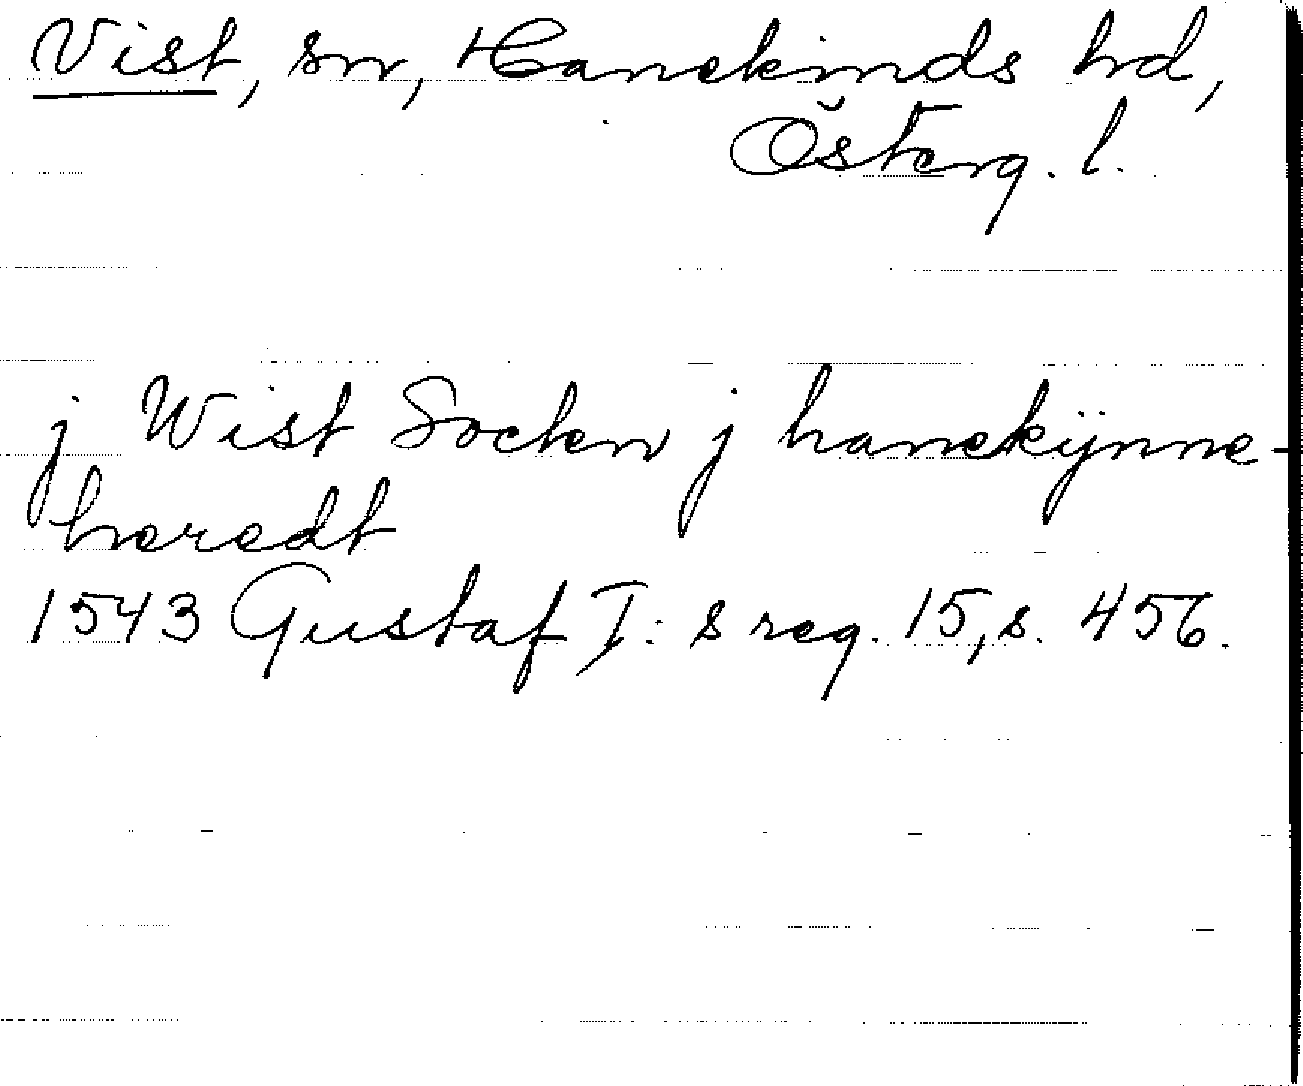 Vist, sn, Hanekinds hd,
Österg. l.
j Wist Socken j hanekÿnne-
heredt
1543 Gustaf I:s reg. 15, s. 456.